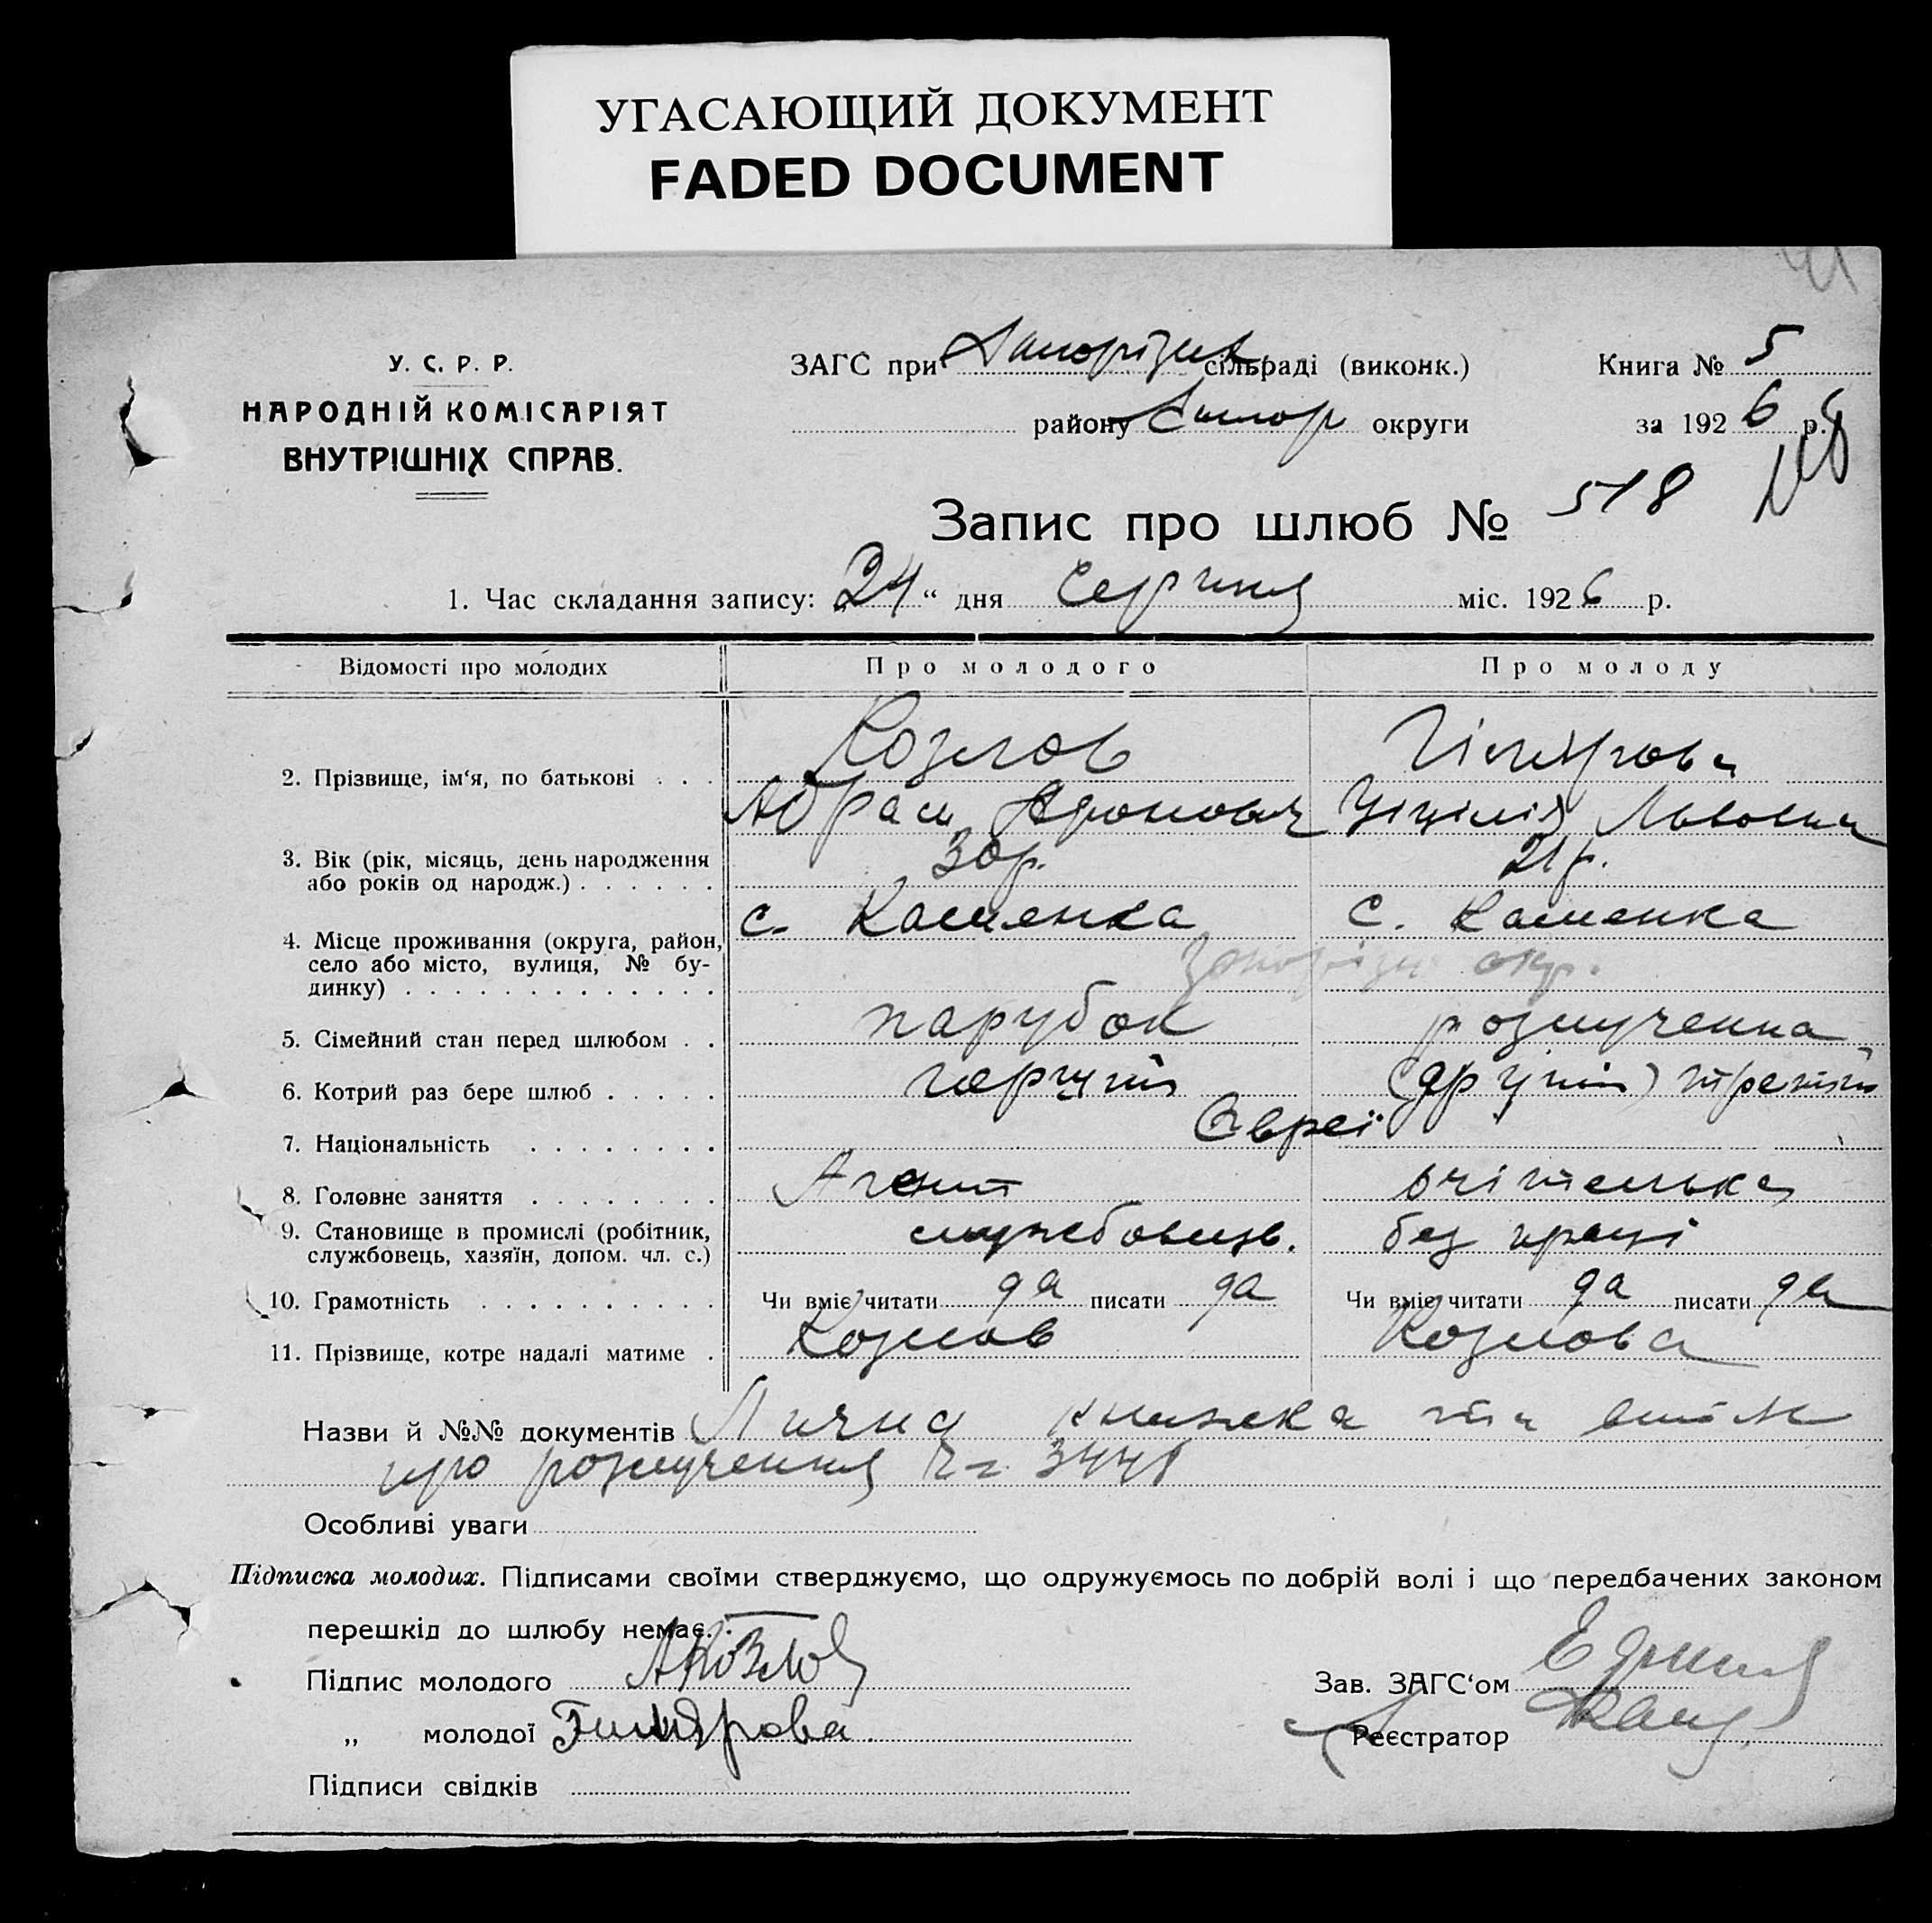 УГАСАЮЩИЙ ДОКУМЕНТ
FADED DOCUMENT
У. С. Р. Р.
НАРОДНІЙ КОМІСАРІЯТ
ВНУТРІШНІХ СПРАВ.
ЗАГС при Запорізьк сільраді (виконк.)
району Запор округи
Книга № 5
за 1926 р.
Запис про шлюб № 518
1. Час складання запису: „24“ дня Серпня міс. 1926 р.
Відомості про молодих Про молодого Про молоду
2. Прізвище, ім‘я, по батькові . . . Козлов Гімярова
Абрам Аронович Ціцілія Львовна
3. Вік (рік, місяць, день народження
або років од народж.) . . . . . . 30р. 21р.
с. Каменка с. Каменка
4. Місце проживання (округа, район,
село або місто, вулиця, № бу-
динку) . . . . . . . . . . . . . Запорізьк окр.
5. Сімейний стан перед шлюбом . . парубок розлученна
6. Котрий раз бере шлюб . . . . . перший (другий) третій
7. Національність . . . . . . . . Євреї
8. Головне заняття . . . . . . . . Агент вчітелька
9. Становище в промислі (робітник,
службовець, хазяїн, допом. чл. с.) службовець. без праці
10. Грамотність . . . . . . . . . . . Чи вміє читати да писати да Чи вміє читати да писати да
11. Прізвище, котре надалі матиме . Козлов Козлова
Назви й №№ документів Лична книжка та
про розлучення
Особливі уваги
Підписка молодих. Підписами своїми стверджуємо, що одружуємось по добрій волі і що передбачених законом
перешкід до шлюбу немає.
Підпис молодого АКозлов
„ молодої
Підписи свідків
Зав. ЗАГС‘ом
Реєстратор